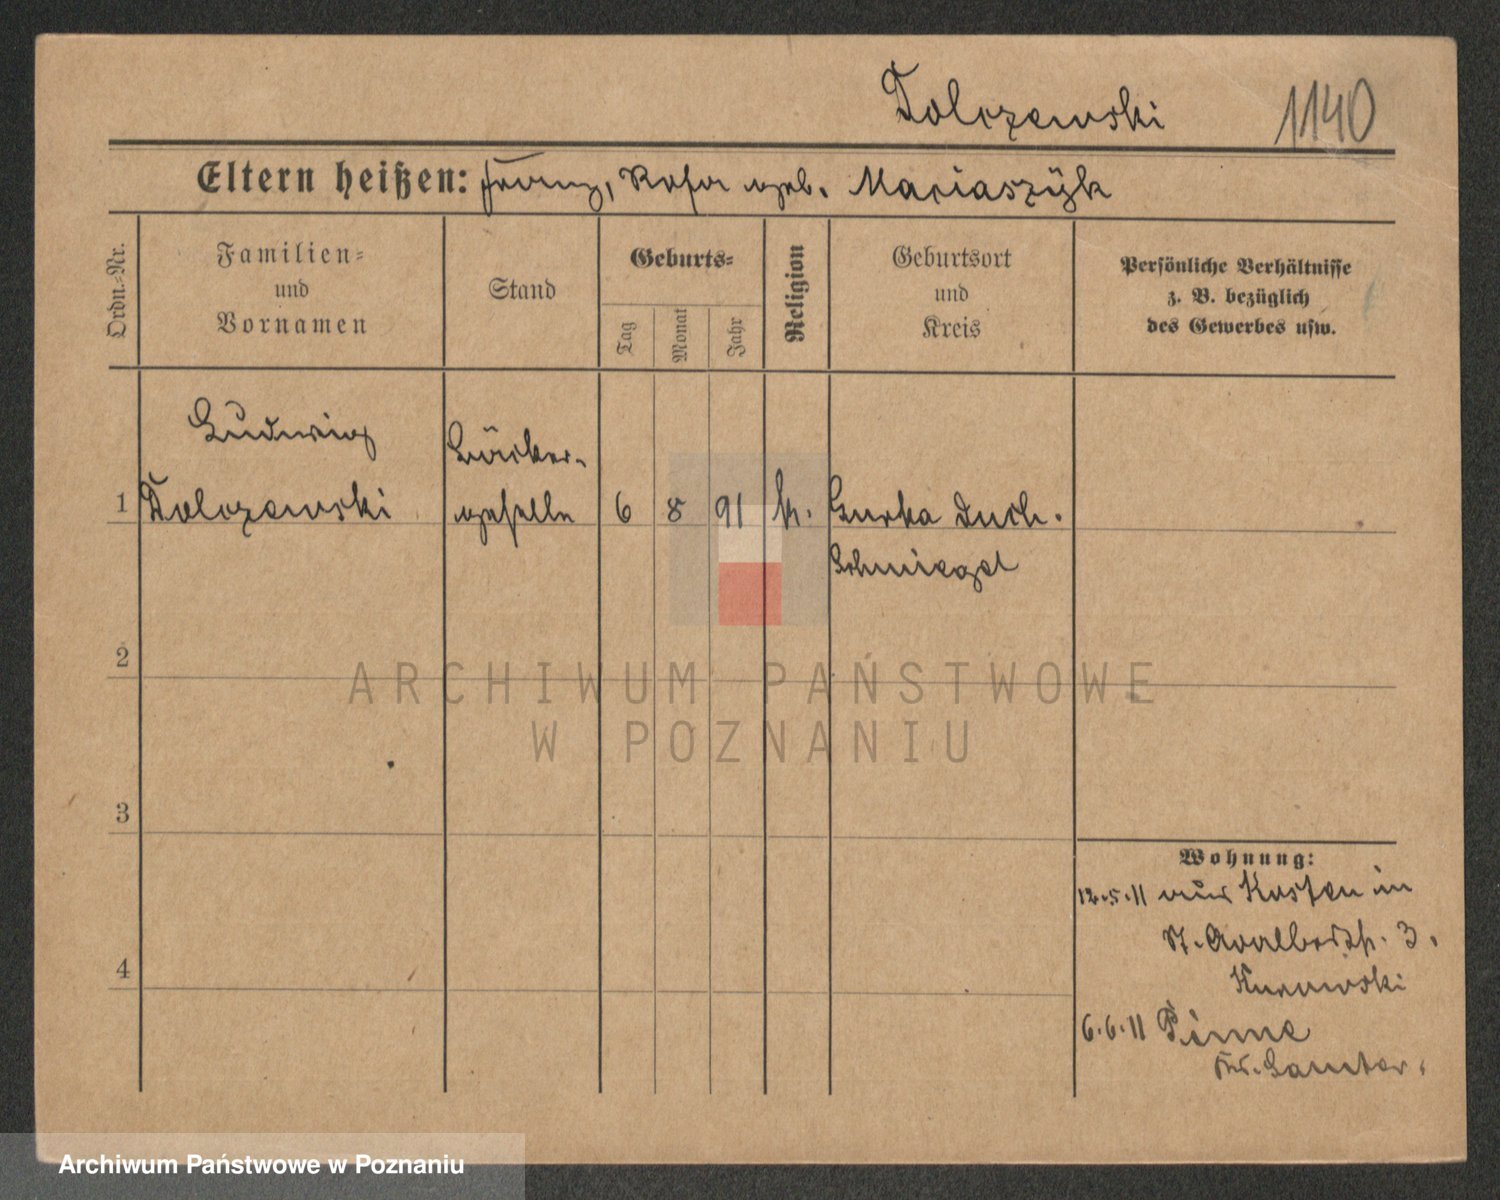 Tolczewski 1140
Eltern heißen: Franz, Rosa geb. Maciaszÿk
Ordn.=Nr.
Familien=
und
Vornamen
Stand
Geburts=
Tag
Monat
Jahr
Religion
Geburtsort
und
Kreis
Persönliche Verhältnisse
z. B. bezüglich
des Gewerbes usw.
Ludwig
Bäcker-
1 Tolczewski geselle 6 8 91 k. Gurka Duch.
Schmiegel
2
3
4
Wohnung:
12.5.11 aus Kosten in
St. Adalbertstr. 3.
6.6.11 Pinne
Kr. Samter.
ARCHIWUM PAŃSTWOWE
W POZNANIU
Archiwum Państwowe w Poznaniu